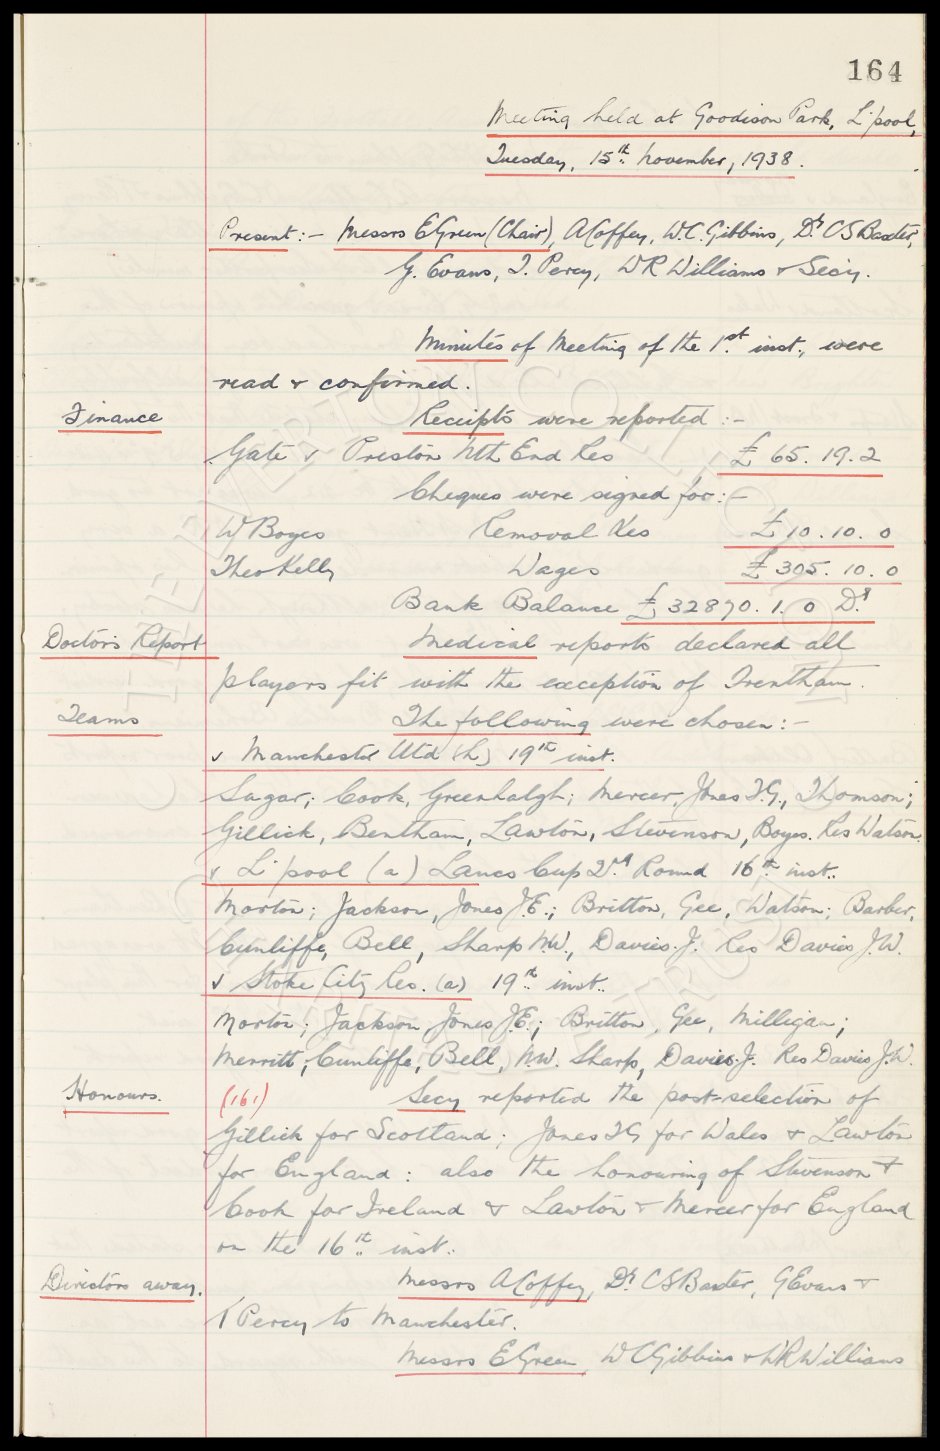 164
Meeting held at Goodison Park, L'pool,
Tuesday, 15th November, 1938.
Present:- Messrs E Green (Chair), A Coffey, W.C. Gibbins, Dr CS Baxter,
G. Evans, T. Percy, WR Williams & Secy.
Minutes of Meeting of the 1st inst., were
read & confirmed.
Finance Receipts were reported :-
Gate v Preston Nth End Res £65.19.2
Cheques were signed for:-
W Boyes Removal Xes £10.10.0
Theo Kelly Wages £305.10.0
Bank Balance £32870.1.0 Dr
Doctor's Report Medical reports declared all
players fit with the exception of Trentham.
Teams The following were chosen:-
v Manchester Utd (h) 19th inst.
Sagar; Cook, Greenhalgh; Mercer, Jones T.G., Thomson;
Gillick, Bentham, Lawton, Stevenson, Boyes. Res Watson.
v L'pool (a) Lancs Cup 2nd Round 16th inst.
Morton; Jackson, Jones J.E.; Britton, Gee, Watson; Barber,
Cunliffe, Bell, Sharp N.W., Davies J. Res Davies J.W.
v Stoke City Res. (a) 19th inst..
Morton; Jackson, Jones J.E.; Britton, Gee, Milligan;
Merritt, Cunliffe, Bell, N.W. Sharp, Davies J. Res Davies J.W.
Honours. (161) Secy reported the post-selection of
Gillick for Scotland; Jones TG for Wales & Lawton
for England: also the honouring of Stevenson &
Cook for Ireland & Lawton & Mercer for England
on the 16th inst.
Directors away. Messrs A Coffey, Dr. CS Baxter, G Evans &
T Percy to Manchester.
Messrs E Green, WC Gibbins & WR Williams
THE EVERTON COLLECTION